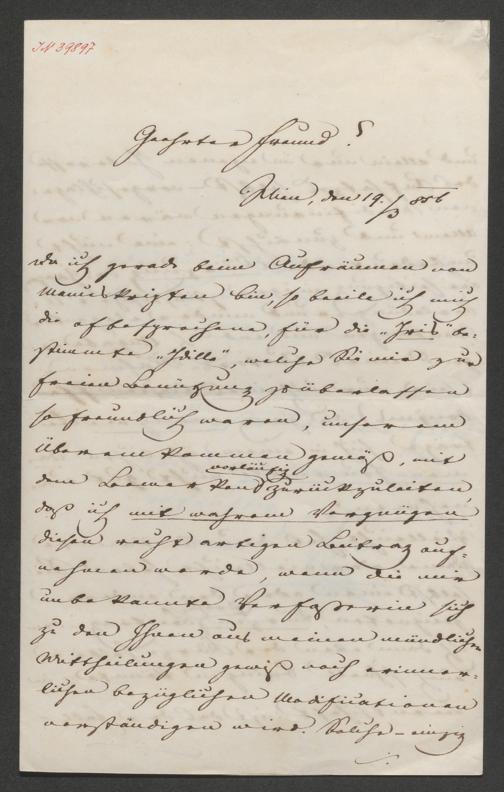 IN 39897
Geehrter Freund!
Wien, den 19./3 856
Da ich gerade beim Aufräumen von
Manuskripten bin, so beeile ich mich
die oftbesprochene, für die „Iris" be-
stimmte „Idille", welche Sie mir zur
freien Benützung zu überlassen
so freundlich waren, unserem
Übereinkommen gemäß, mit
vorläufig
dem Bemerken zurückzuleiten,
daß ich mit wahrem Vergnügen
diesen recht artigen Beitrag auf-
nehmen werde, wenn die mir
unbekannte Verfasserin sich
zu den Ihnen aus meinen mündlichen
Mittheilungen gewiß noch erinner-
lichen bezüglichen Modificationen
verständigen wird. Solche – einzig